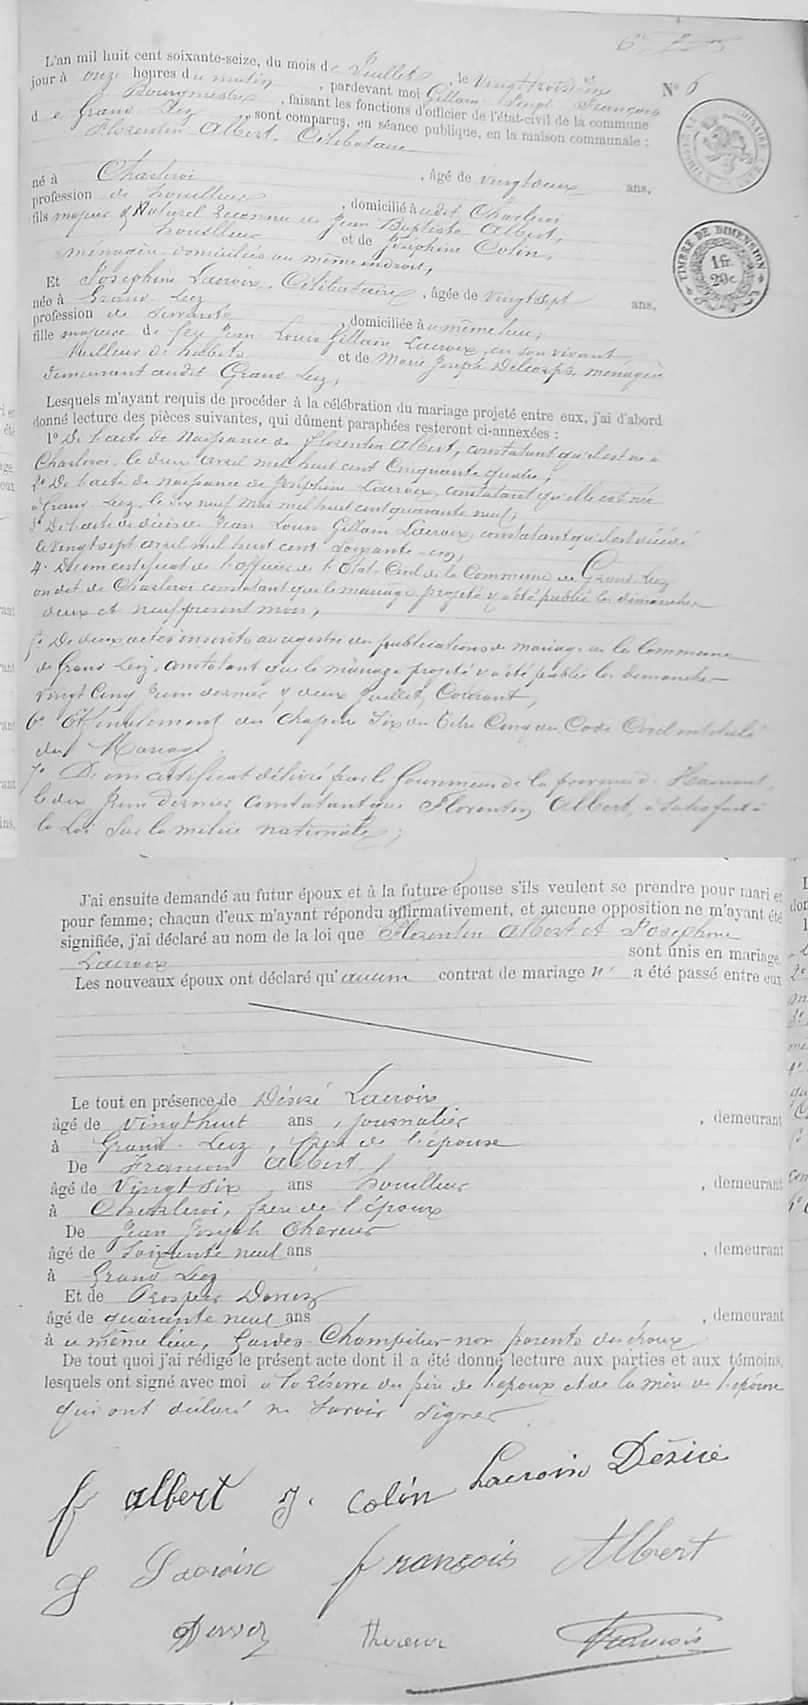 N° 6
L'an mil huit cent soixante-seize, du mois de Juillet, le vingt troisième
jour à onze heures du matin, pardevant moi Gillain Joseph François
Bourgmestre, faisant les fonctions d'officier de l'état-civil de la commune
de Grand Leez sont comparus, en séance publique, en la maison communale :
Florentin Albert, Célibataire
né à Charleroi, âgé de vingt deux ans,
profession de houilleur, domicilié audit Charleroi
fils majeur & Naturel Reconnu de Jean Baptiste Albert,
houilleur et de Joséphine Colin,
ménagère, domiciliés au même endroit,
Et Joséphine Lacroix, Célibataire, âgée de vingt sept ans,
née à Grand-Leez
profession de Servante, domiciliée au même lieu,
fille majeure de feu Jean Louis Gillain Lacroix, en son vivant,
tailleur d'habits et de Marie Joseph Delcorps, ménagère
demeurant audit Grand Leez,
Lesquels m'ayant requis de procéder à la célébration du mariage projeté entre eux, j'ai d'abord
donné lecture des pièces suivantes, qui dûment paraphées resteront ci-annexées :
1° De l'acte de Naissance de Florentin Albert, constatant qu'il est né à
Charleroi, le deux avril mil huit cent Cinquante quatre ;
2° De l'acte de naissance de Joséphine Lacroix, constatant qu'elle est née
à Grand Leez, le dix neuf Mai mil huit cent quarante neuf ;
3° De l'acte de décès de Jean Louis Gillain Lacroix, constatant qu'il est décédé
le vingt sept avril mil huit cent Soixante-un,
4° D'un certificat de l'officier de l'Etat-Civil de la Commune de Grand Leez
audit de Charleroi constatant que le mariage projeté y a été publié les dimanches
deux et neuf présent mois ;
5° De deux actes inscrits au registre des publications de mariage de la Commune
de Grand Leez, constatant que le mariage projeté y a été publié les dimanches
vingt Cinq Juin dernier & deux Juillet Courant,
6° Et finalement du Chapitre Six du Titre Cinq du Code Civil intitulé
du Mariage.
7° D'un certificat délivré par le Gouverneur de la province de Hainaut,
le dix Juin dernier constatant que Florentin Albert, a satisfait à
la Loi Sur la milice nationale ;
TIMBRE DE DIMENSION
1 fr.
20c.
J'ai ensuite demandé au futur époux et à la future épouse s'ils veulent se prendre pour mari et
pour femme; chacun d'eux m'ayant répondu affirmativement, et aucune opposition ne m'ayant été
signifiée, j'ai déclaré au nom de la loi que Florentin Albert et Joséphine
Lacroix sont unis en mariage.
Les nouveaux époux ont déclaré qu'aucun contrat de mariage n' a été passé entre eux
Le tout en présence de Désiré Lacroix
âgé de vingt huit ans, journalier, demeurant
à Grand-Leez, frère de l'épouse
De François Albert
âgé de Vingt-six ans houilleur, demeurant
à Charleroi, frère de l'époux
De Jean Joseph
âgé de Soixante neuf ans, demeurant
à Grand Leez
Et de Prosper
âgé de quarante neuf ans, demeurant
à u même lieu, Gardes-Champêtres non parents des époux
De tout quoi j'ai rédigé le présent acte dont il a été donné lecture aux parties et aux témoins,
lesquels ont signé avec moi à la réserve du père de l'époux et de la mère de l'épouse
qui ont déclaré ne savoir signer.
f albert J. Colin Lacroix Désiré
J Lacroix françois Albert
François